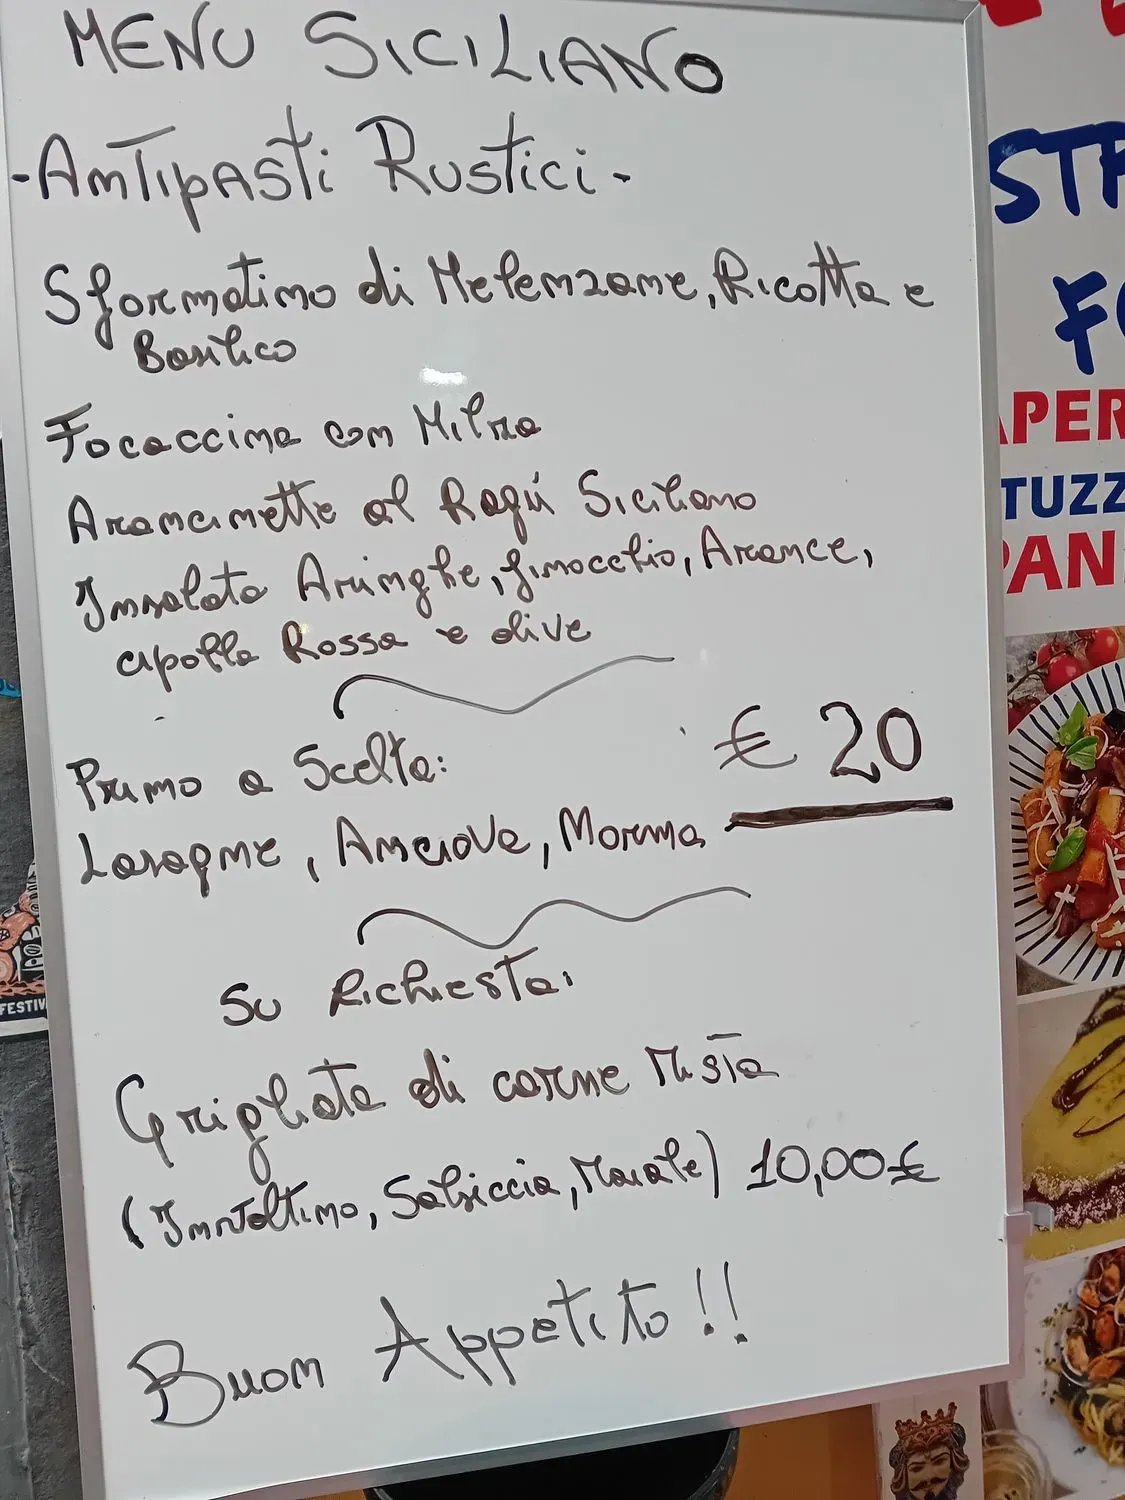 MENU SICILIANO
-Antipasti Rustici-
Sformatino di Melenzane, Ricotta e
Basilico
Focaccina con Milza
Arancinette al Ragú Siciliano
Insalata Aringhe, finocchio, Arance,
cipolla Rossa e olive
Primo a Scelta:
€ 20
Lasagne, Anciova, Norma
Su Richiesta:
Grigliata di carne Mista
(Involtino, Salsiccia, Maiale) 10,00€
Buon Appetito!!
STR
FO
APER
TUZZ
PAN
FESTIV